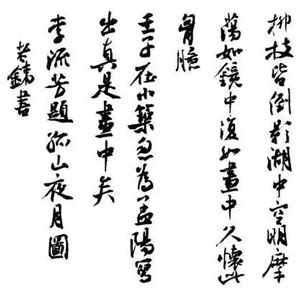 柳枝皆倒影湖中空明摩
蕩如鏡中復如畫中久懷此
胷臆
壬子在小築忽為孟陽寫
出真是畫中矣
李流芳題孤山夜月圖
書